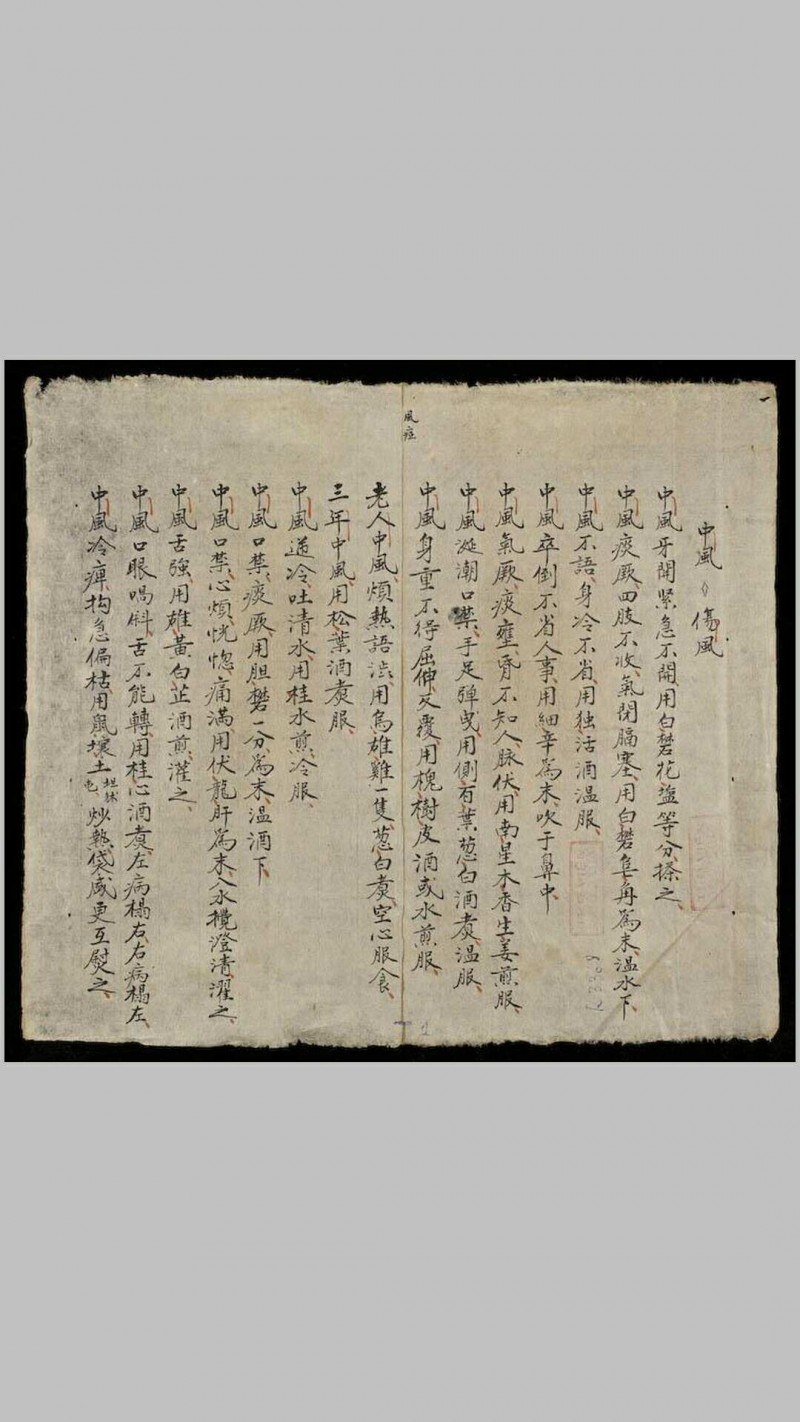 風症
中風 ◊ 傷風
中風牙關緊急不開用白礬花塩等分搽之、
中風痰厥、四肢不收、氣閉膈塞、用白礬皂角為末、温水下、
中風不語、身冷不省、用独活酒温服、
中風卒倒不省人事、用細辛為末、吹于鼻中、
中風氣厥、痰壅、昏不知人、脉伏、用南星木香生姜煎服、
中風涎潮口禁、手足彈曳、用側栢葉葱白酒煑、温服、
中風身重不得屈伸反覆、用槐樹皮酒或水煎服、
老人中風、煩熱語澁、用烏雄雞一隻、葱白煑、空心服食、
三年中風、用松葉酒煑服、
中風逆冷、吐清水、用桂水煎冷服、
中風口禁、痰厥、用胆礬一分為末、温酒下、
中風口禁、心煩、恍惚、痛満、用伏龍肝為末、入水攪澄清灌之、
中風舌強、用雄黃白芷酒煎、灌之、
中風口眼喎斜、舌不能轉、用桂心酒煑、左病搨右、右病搨左、
中風冷痺、拘急偏枯、用鼠壤土炒熱袋盛更互熨之、